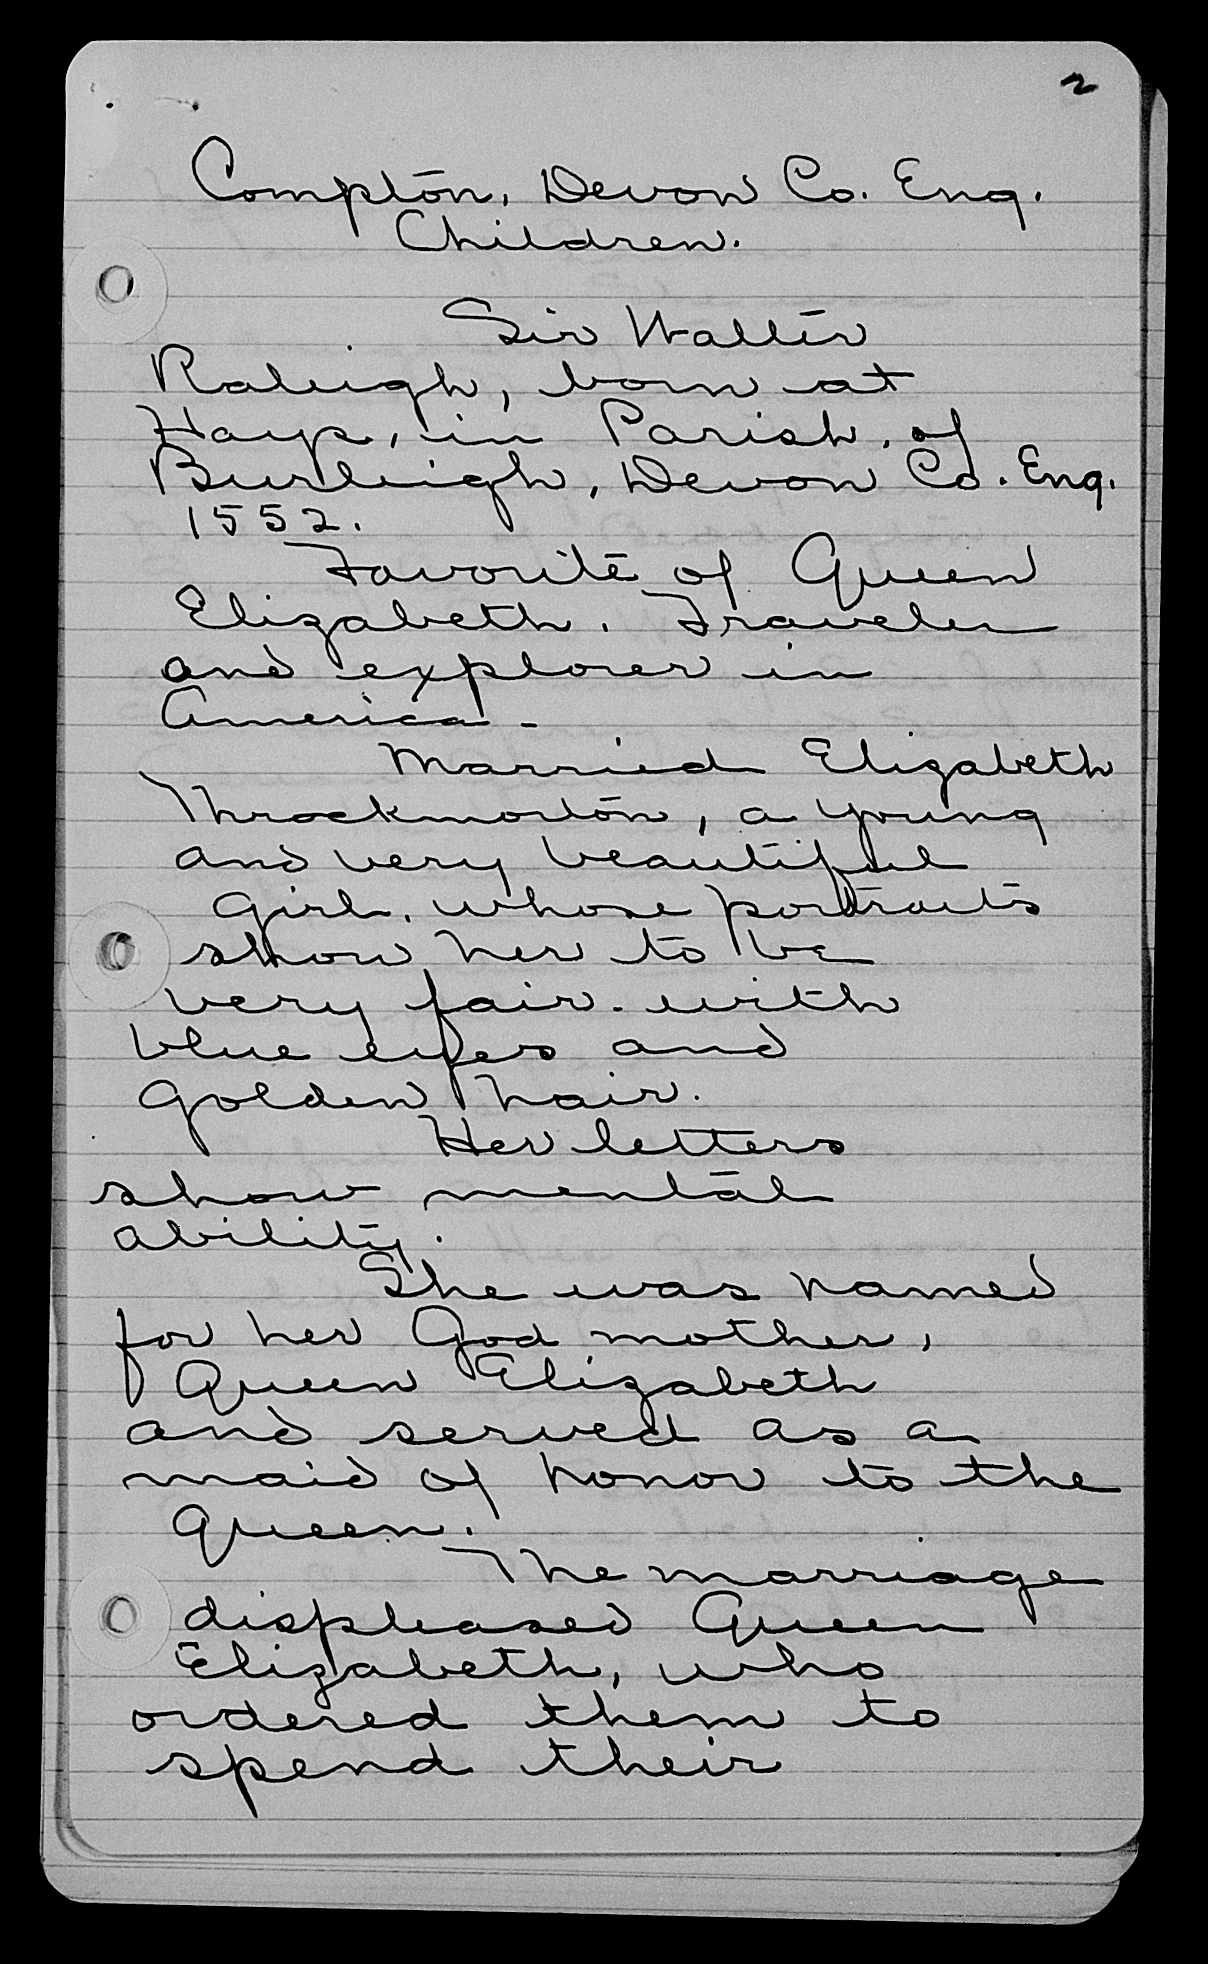 2
Compton, Devon Co. Eng.
Children.
Sir Walter
Raleigh, born at
Hays, in Parish of
Burleigh, Devon Co. Eng.
1552.
Favorite of Queen
Elizabeth. Traveler
and explorer in
America.
Married Elizabeth
Throckmorton, a young
and very beautiful
girl, whose portraits
show her to be
very fair. with
blue eyes and
golden hair.
Her letters
show mental
ability.
She was named
for her God mother,
Queen Elizabeth
and served as a
maid of honor to the
Queen.
The marriage
displeased Queen
Elizabeth, who
ordered them to
spend their